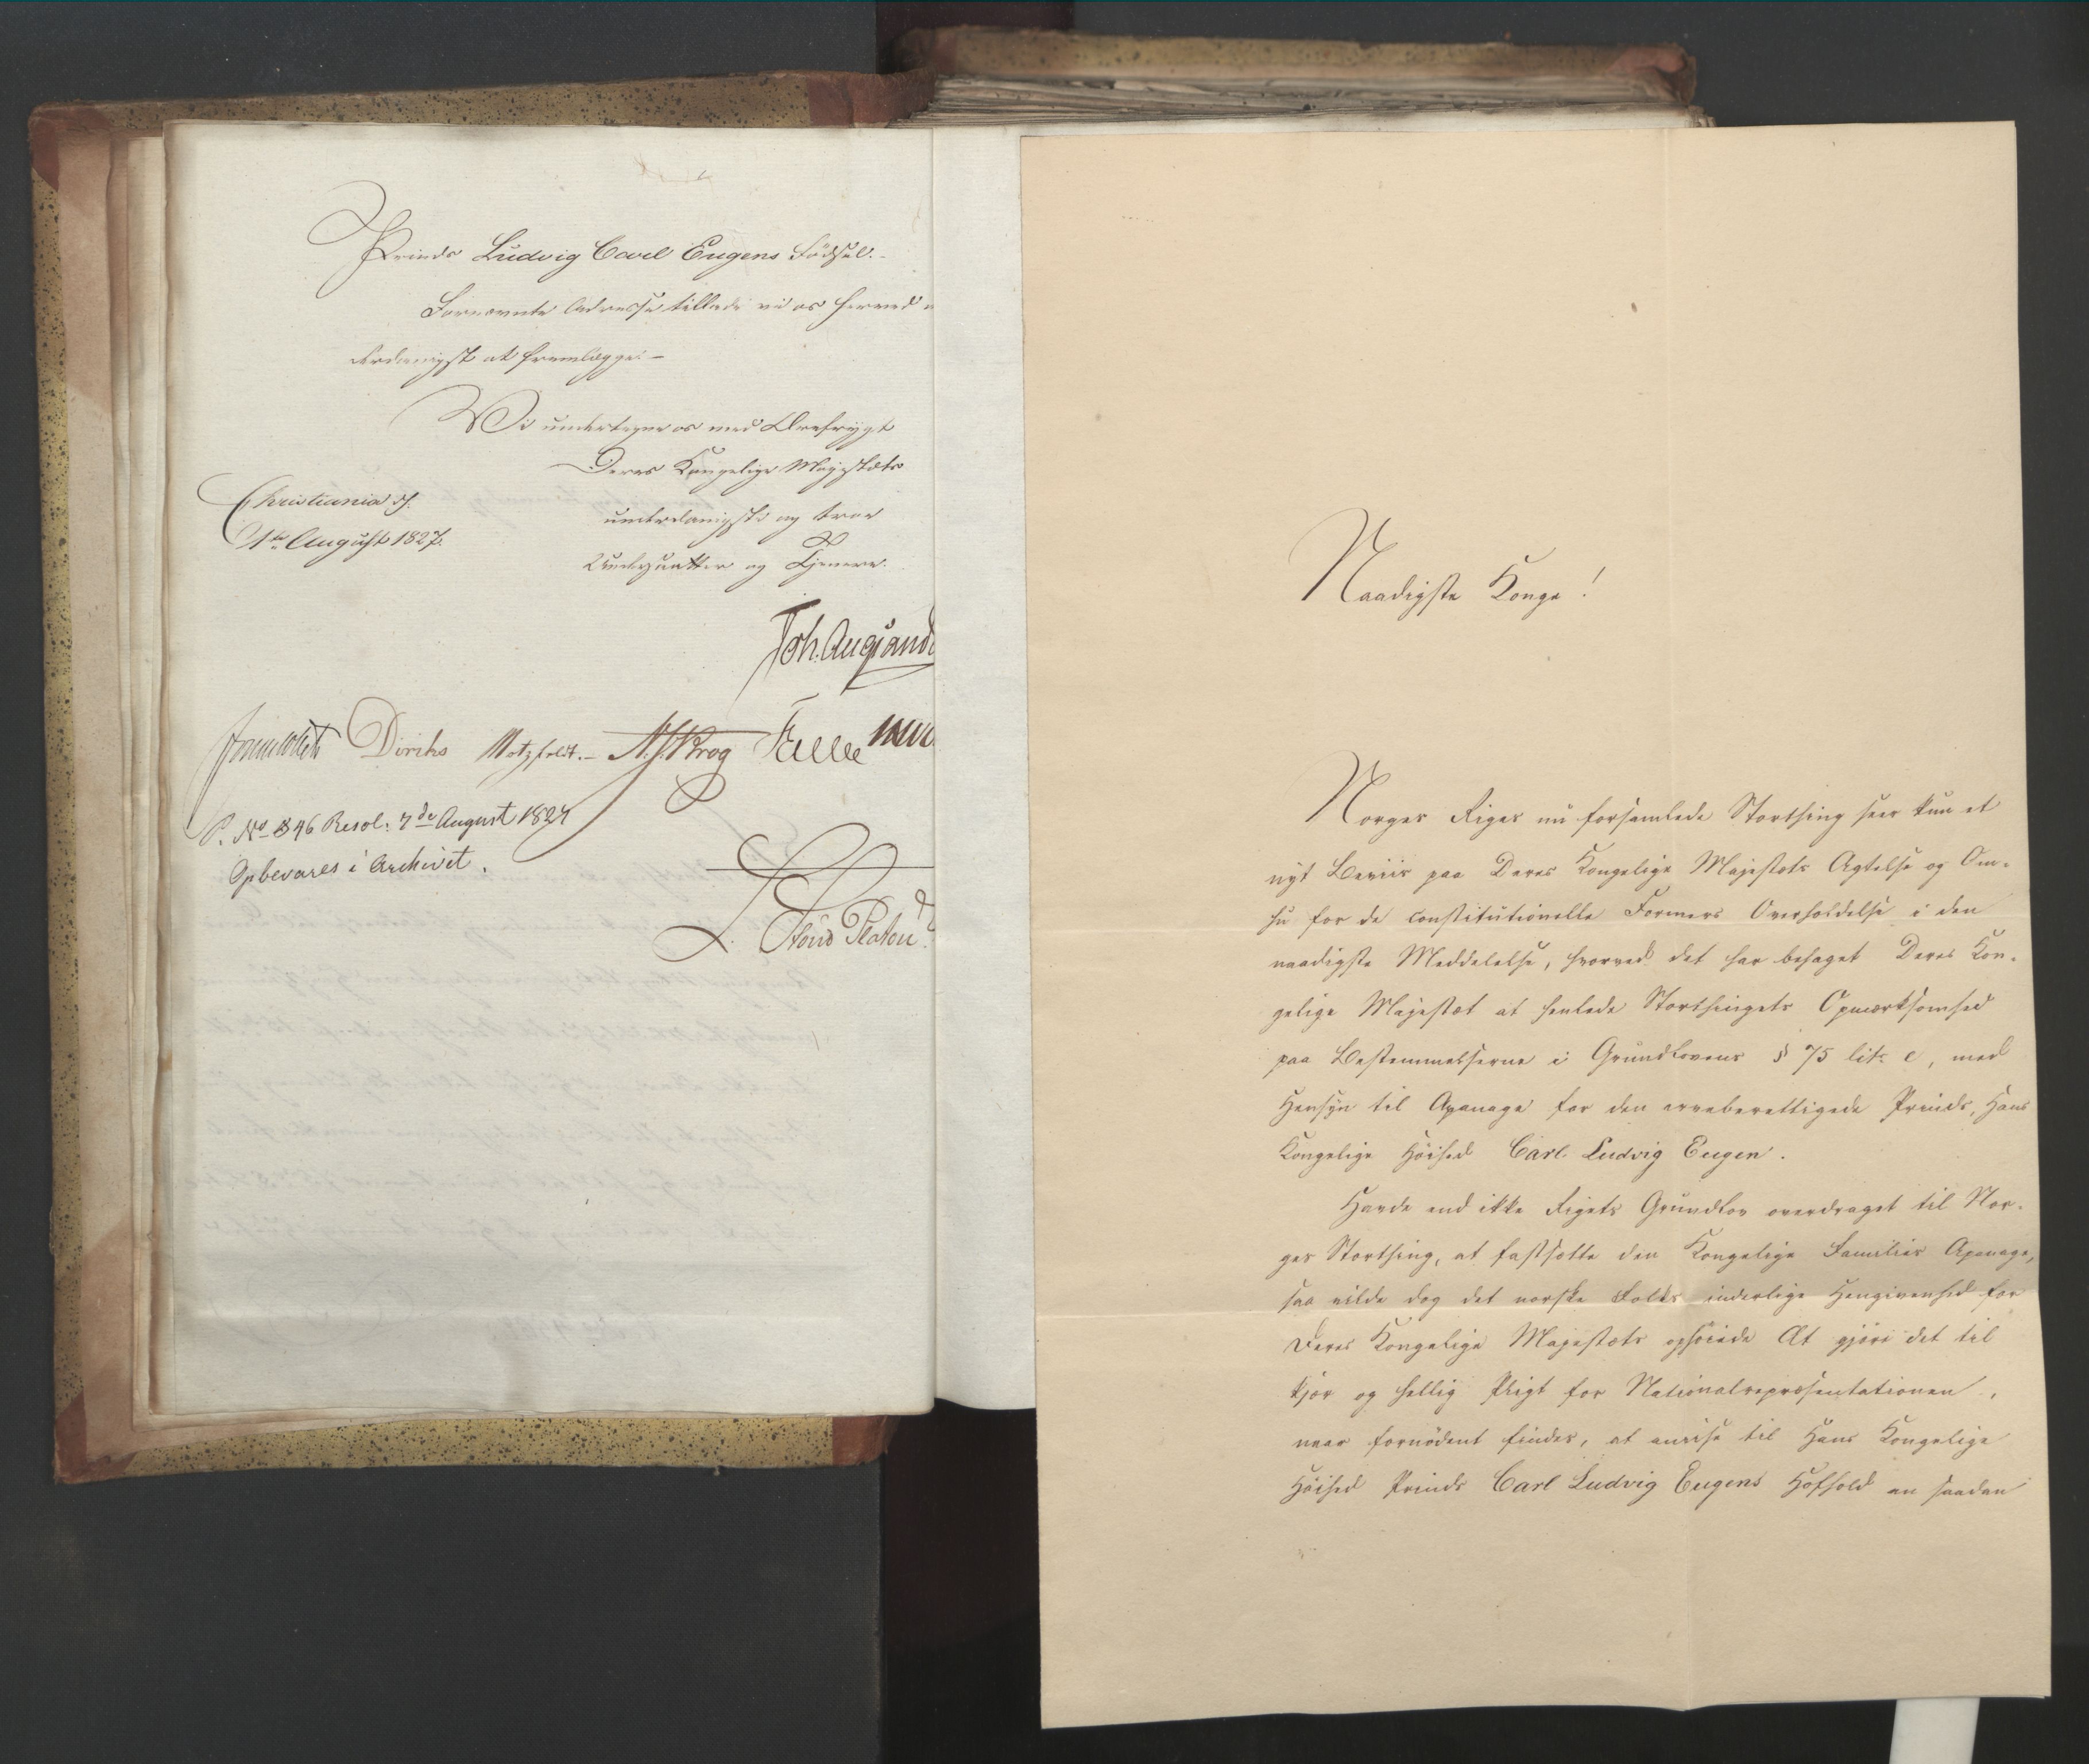 Prinds Ludvig Carl Eugens Födsel.-
Fornævnte Adresse tillade vi os herved
underdanigst at fremlægge.-
Vi undertegne os med Ærefrygt
Deres Kongelige Majestæts
Christiania d.
underdanigste og troe
1ste August 1827.
Undersaatter og Tjenere.
Diriks Motzfeldt.- N.J. Krog
P. No 846 Resol: 7de August 1827
Opbevares i Archivet.
Stoud Platou
Naadigste Konge!
Norges Riges nu forsamlede Storthing seer kun et
nyt Beviis paa Deres Kongelige Majestæts Agtelse og Om-
hu for de constitutionelle Formers Overholdelse i den
naadigste Meddelelse, hvorved det har behaget Deres Kon-
gelige Majestæt at henlede Storthingets Opmærksomhed
paa Bestemmelserne i Grundlovens § 75 lit: e, med
Hensyn til Apanage for den arveberettigede Prinds, Hans
Kongelige Höihed Carl Ludvig Eugen.
Havde end ikke Rigets Grundlov overdraget til Nor-
ges Storthing, at fastsætte den Kongelige Families Apanage,
saa vilde dog det norske Folks inderlige Hengivenhed for
Deres Kongelige Majestæts ophöiede Æt gjöre det til
kjær og hellig Pligt for Nationalrepræsentationen,
naar fornödent findes, at anvise til Hans Kongelige
Höihed Prinds Carl Ludvig Eugens Hofhold en saadan